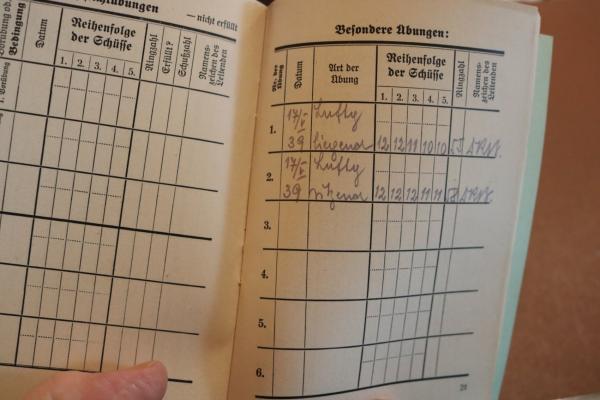 übungen
— nicht erfüllt
Bedingung
Datum
Reihenfolge
der Schüsse
1. 2. 3. 4. 5.
Ringzahl
Erfüllt?
Schußzahl
Namens-
zeichen des
Leitenden
Besondere Übungen:
Nr. der
Übung
Datum
Art der
Übung
Reihenfolge
der Schüsse
1. 2. 3. 4. 5.
Ringzahl
Namens-
zeichen des
Leitenden
1. 17/V Luftg
39 liegend 12 12 11 10 10 55
2. 17/V Luftg
39 sitzend 12 12 12 11 11 58
3.
4.
5.
6.